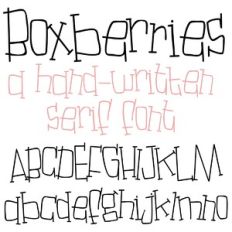 Boxberries
a hand-written
serif font
ABCDEFGHIJKLM
abcdefghijklmno